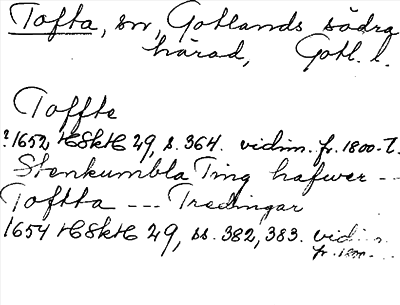 Tofta, sn, Gotlands södra
härad, Gotl. l.
Toffte
? 1652 HSkH 29, s. 364. vidim. fr. 1800-t.
Stenkumbla Ting hafwer --
Toftta --- Tredingar
1654 HSkH 29, ss. 382, 383. vidim.
fr. 1800